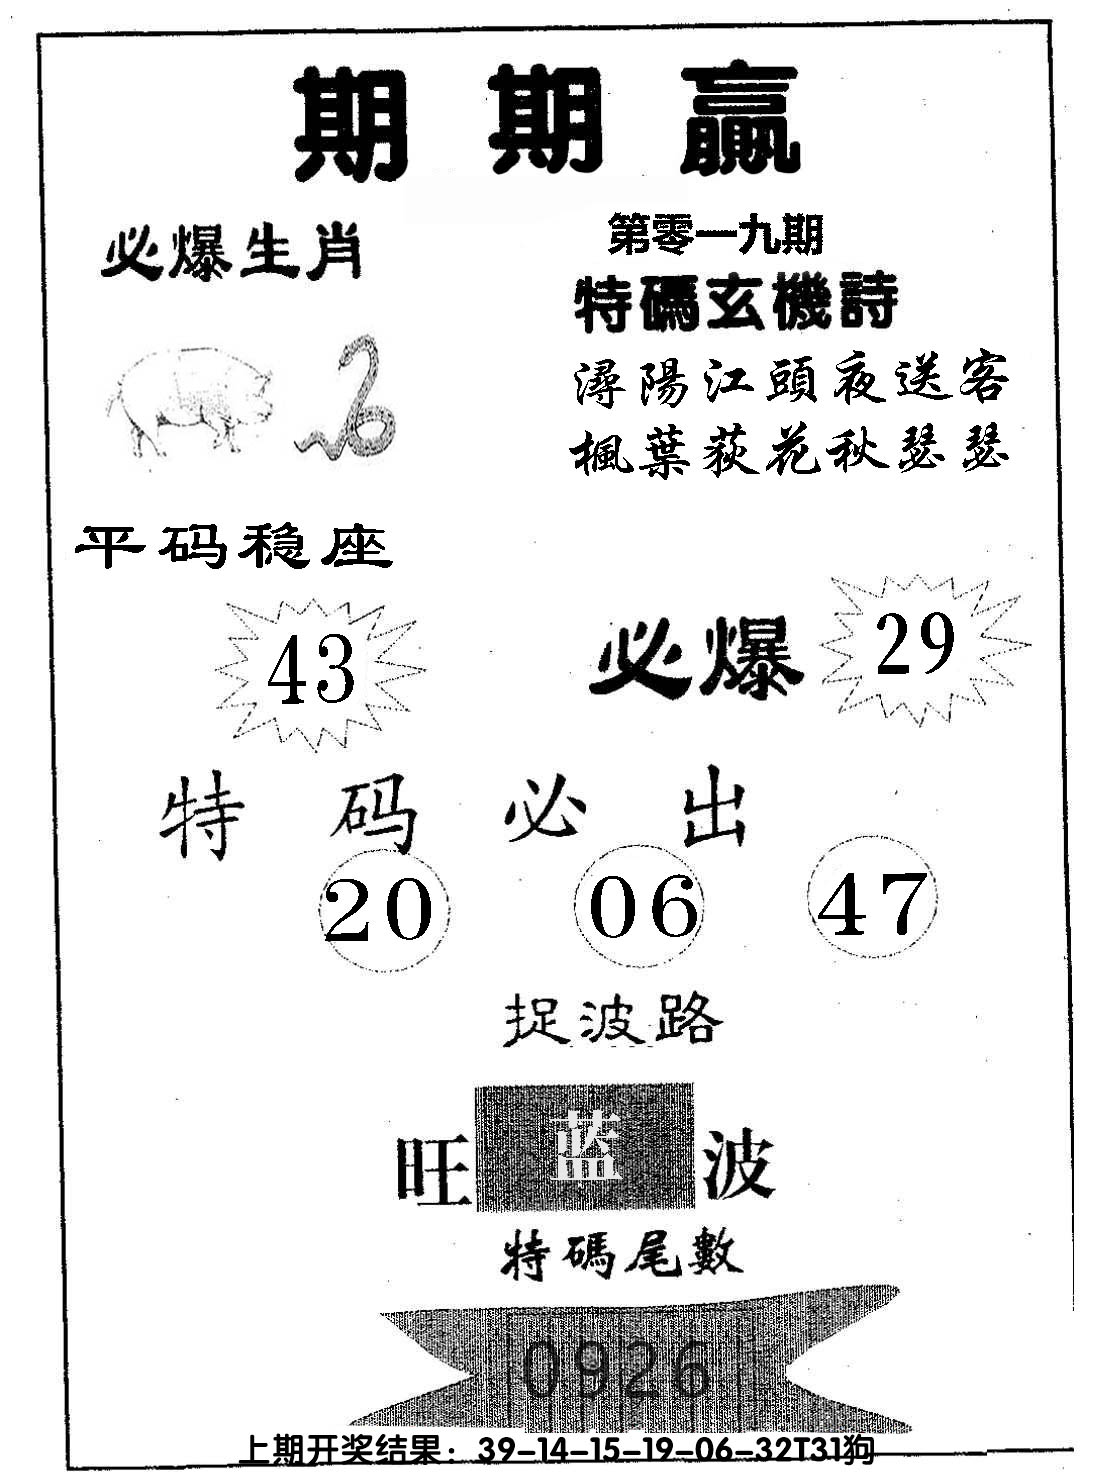 期期赢
必爆生肖
第零一九期
特碼玄機詩
潯陽江頭夜送客
楓葉荻花秋瑟瑟
平码稳座
43
必爆 29
特码必出
20 06 47
捉波路
旺 蓝 波
特碼尾數
0926
上期开奖结果：39-14-15-19-06-32T31狗